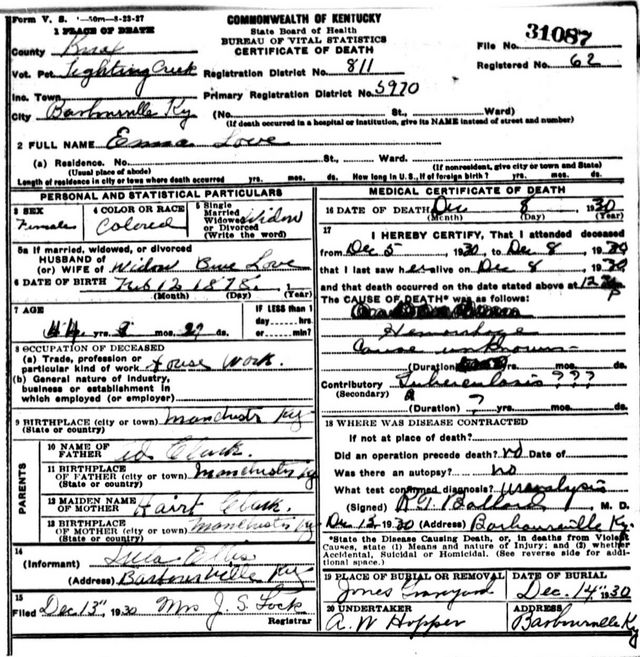 Form V. S. 50m-8-23-27
1 PLACE OF DEATH
COMMONWEALTH OF KENTUCKY
State Board of Health
BUREAU OF VITAL STATISTICS
CERTIFICATE OF DEATH
File No. 31087
Registered No. 62
County Knox
Vot. Pct. Fighting Creek Registration District No. 811
Inc. Town Primary Registration District No. 5970
City Barbourville Ky (No. St., Ward)
(If death occurred in a hospital or institution, give its NAME instead of street and number)
2 FULL NAME Emma Love
(a) Residence. No. St., Ward.
(Usual place of abode) (If nonresident, give city or town and State)
Length of residence in city or town where death occurred yrs. mos. ds. How long in U. S., if of foreign birth? yrs. mos. ds.
PERSONAL AND STATISTICAL PARTICULARS
3 SEX Female
4 COLOR OR RACE Colored
5 Single Married Widowed or Divorced (Write the word) Widow
5a If married, widowed, or divorced
HUSBAND OF
(or) WIFE OF Widow Love
6 DATE OF BIRTH Feb 12 1878
(Month) (Day) (Year)
7 AGE yrs. mos. 27 ds.
IF LESS than 1 day----hrs. or----min?
8 OCCUPATION OF DECEASED
(a) Trade, profession or particular kind of work House Work.
(b) General nature of industry, business or establishment in which employed (or employer)
9 BIRTHPLACE (city or town) Manchester Ky
(State or country)
PARENTS
10 NAME OF FATHER Clark.
11 BIRTHPLACE OF FATHER (city or town) Manchester Ky
(State or country)
12 MAIDEN NAME OF MOTHER Clark.
13 BIRTHPLACE OF MOTHER (city or town) Manchester Ky
(State or country)
14
(Informant)
(Address) Barbourville Ky
15
Filed Dec 13", 1930 Mrs J. S. Lock
Registrar
MEDICAL CERTIFICATE OF DEATH
16 DATE OF DEATH Dec 8 1930
(Month) (Day) (Year)
17 I HEREBY CERTIFY, That I attended deceased
from Dec 5, 1930 to Dec 8, 1930
that I last saw her alive on Dec 8, 1930
and that death occurred on the date stated above at 12 P
The CAUSE OF DEATH* was as follows:
Hemorrhage
Cause unknown
(Duration) yrs. mos. ds.
Contributory Tuberculosis ???
(Secondary)
(Duration) ? yrs. mos. ds.
18 WHERE WAS DISEASE CONTRACTED
If not at place of death?
Did an operation precede death? no Date of
Was there an autopsy? no
What test confirmed diagnosis? Uranalysis
(Signed) Ballard, M. D.
Dec 12, 1930 (Address) Barbourville Ky.
*State the Disease Causing Death, or, in deaths from Violent
Causes, state (1) Means and nature of Injury; and (2) whether
Accidental, Suicidal or Homicidal. (See reverse side for addi-
tional space.)
19 PLACE OF BURIAL OR REMOVAL Jones Graveyard
DATE OF BURIAL Dec. 14" 1930
20 UNDERTAKER A. W Hopper
ADDRESS Barbourville Ky